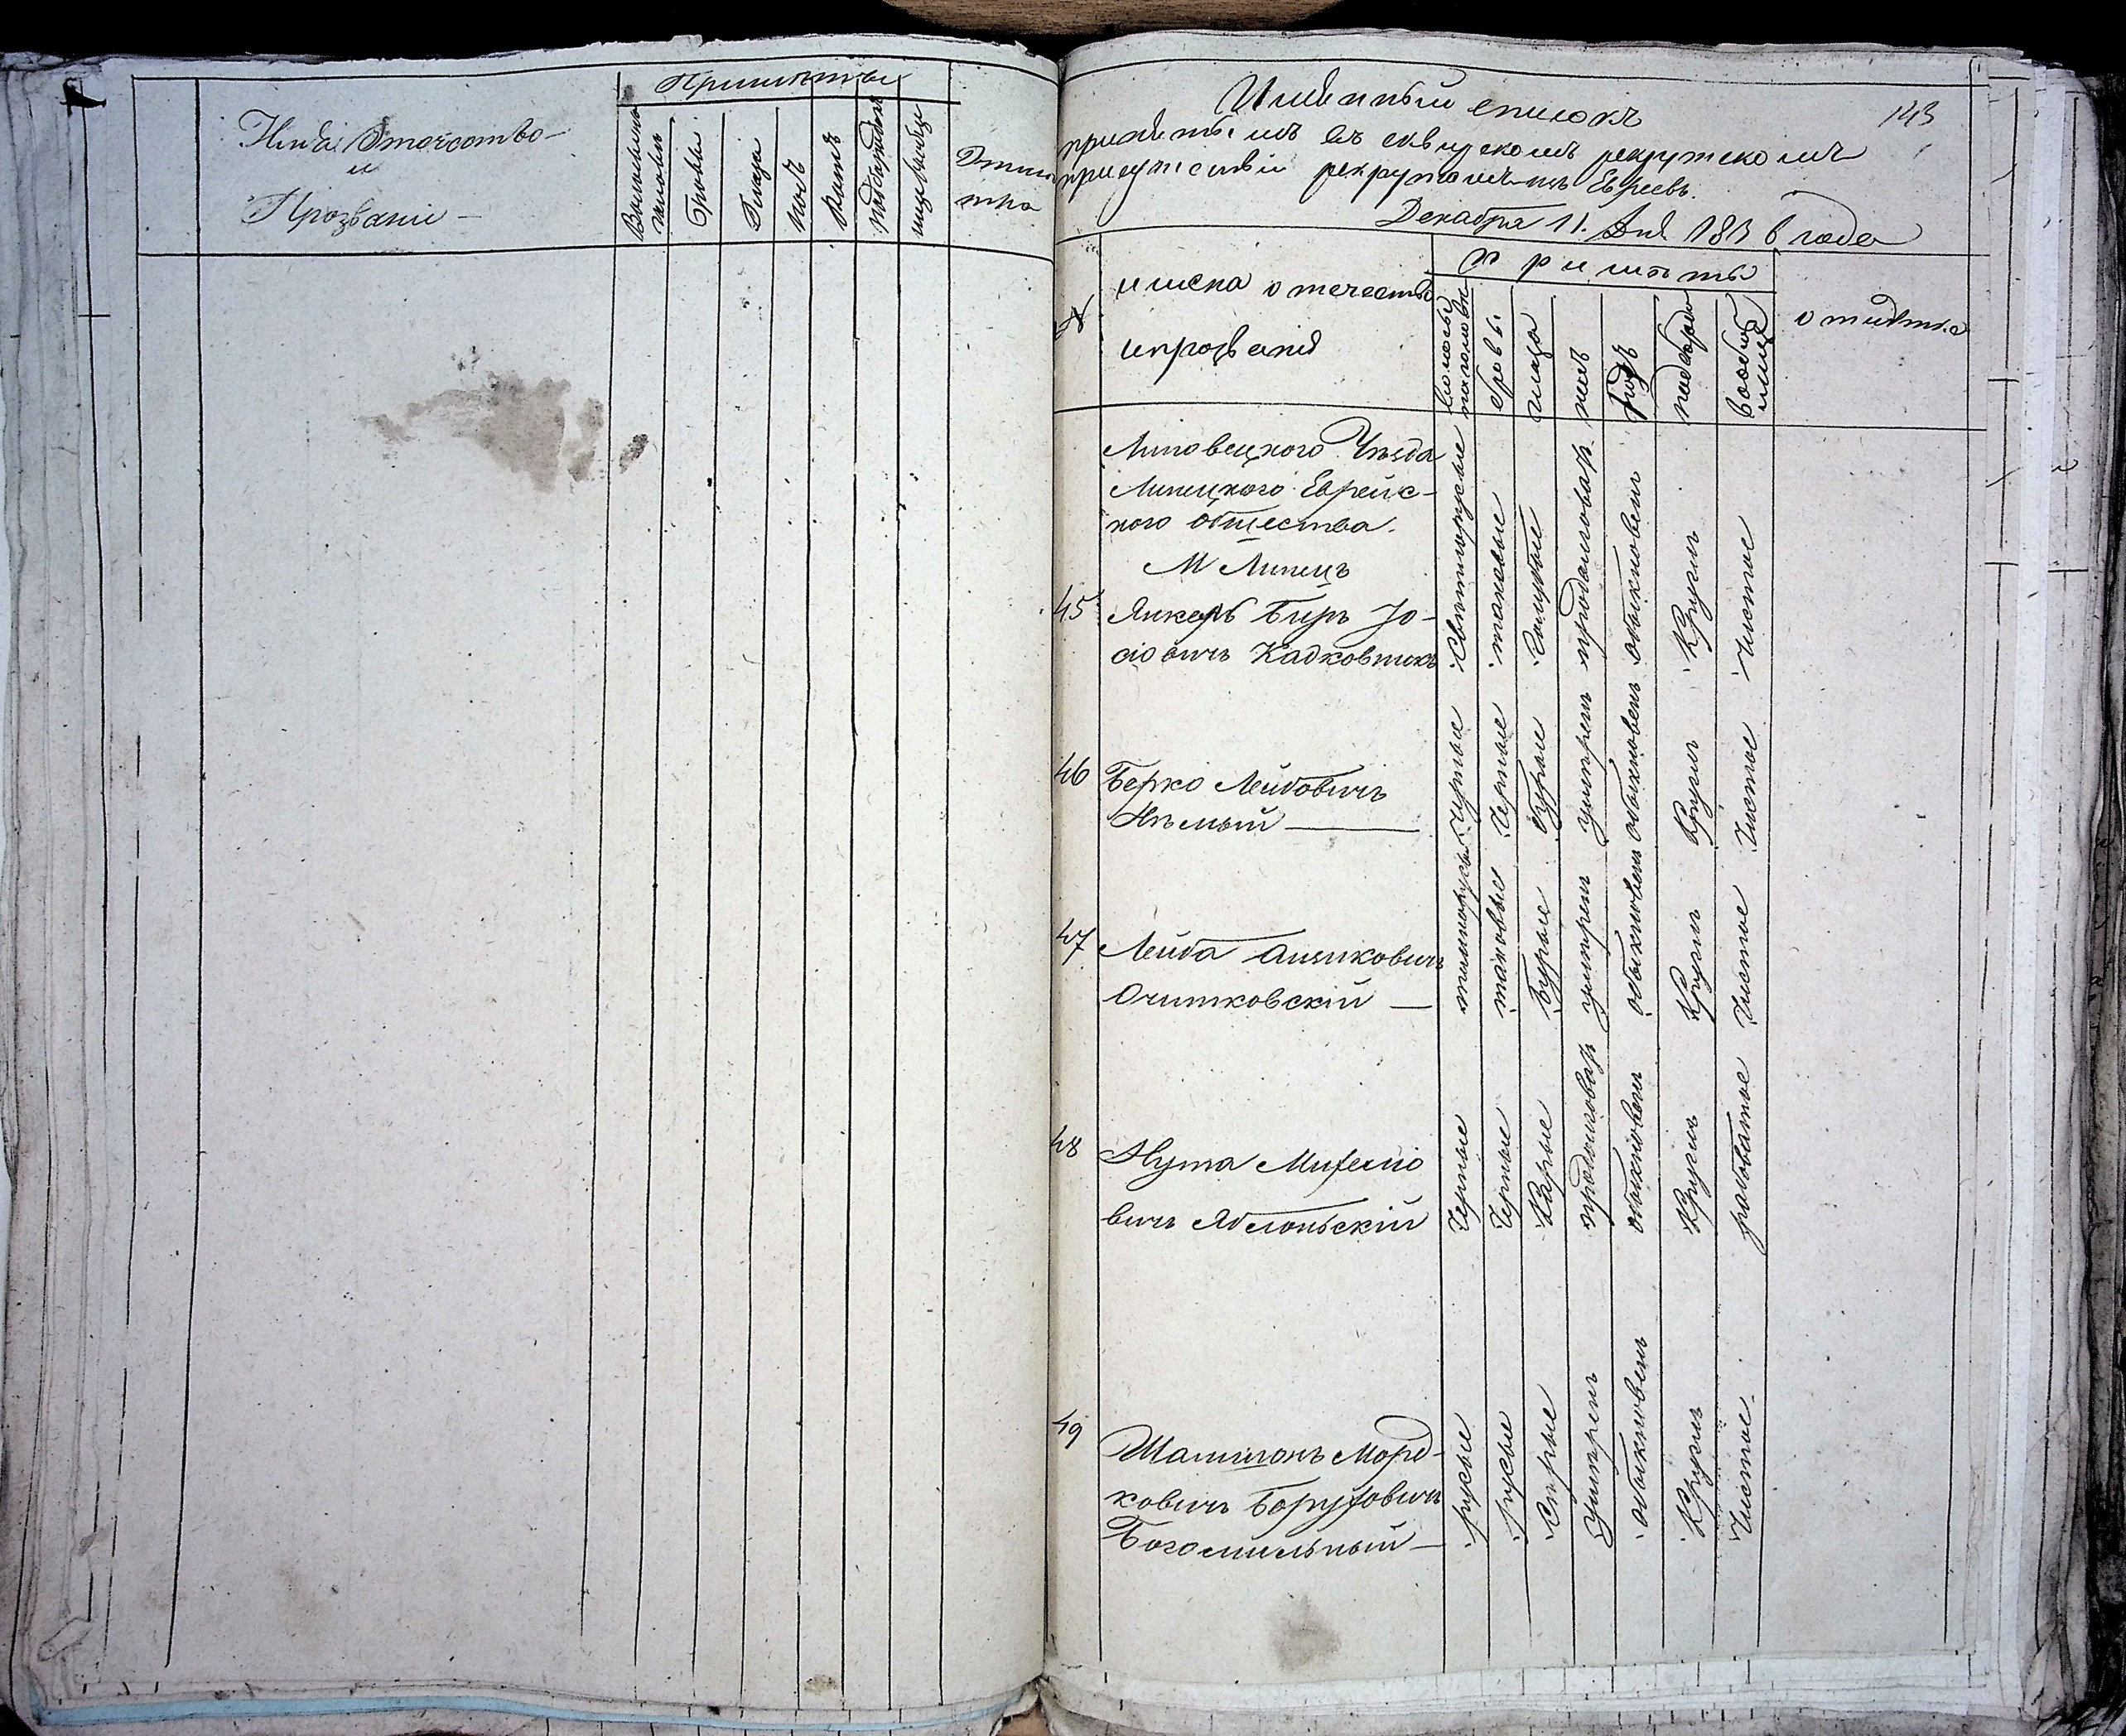 Имя Отчество
и
Прозваніе
Примѣты
Волосы на голове
Бровы
Глаза
Носъ
Ротъ
Подбородокъ
Лице вообще
Отмѣтка
143
Имянный списокъ
принятымъ въ сквирскомъ рекрутскомъ
присутствіи рекрутамъ изъ Евреевъ.
Декабря 11. дня 1836 года
№
имена отечества
и прозванія
примѣты
волосы на головѣ
бровы
глаза
носъ
ротъ
подбородокъ
вообще лице
отмѣтка
Липовецкого Уѣзда
Липецкого Еврейс-
кого общества.
М Липецъ
45 Янкель Беръ Іо-
сіовичъ Кадковникъ
Свѣтлорусые таковые Голубые продолговат обыкновен Кругл Чистое
46 Берко Лейбовичъ
Нѣмый
Черные Черные бурые умѣрен обыкновен Кругл Чистое
47 Лейба Аизиковичъ
Очитковскій
темнорусые таковые бурые умѣрен обыкновен Кругл Чистое
48 Нута Михелио
вичъ Яблоньскій
Черные Черные Карые продолговат обыкновен Кругл рабоватое
49 Шаншонъ Морд-
ковичъ Боруховичъ
Богомильный
русые русые Сѣрые Умѣрен обыкновен Кругл Чистое.